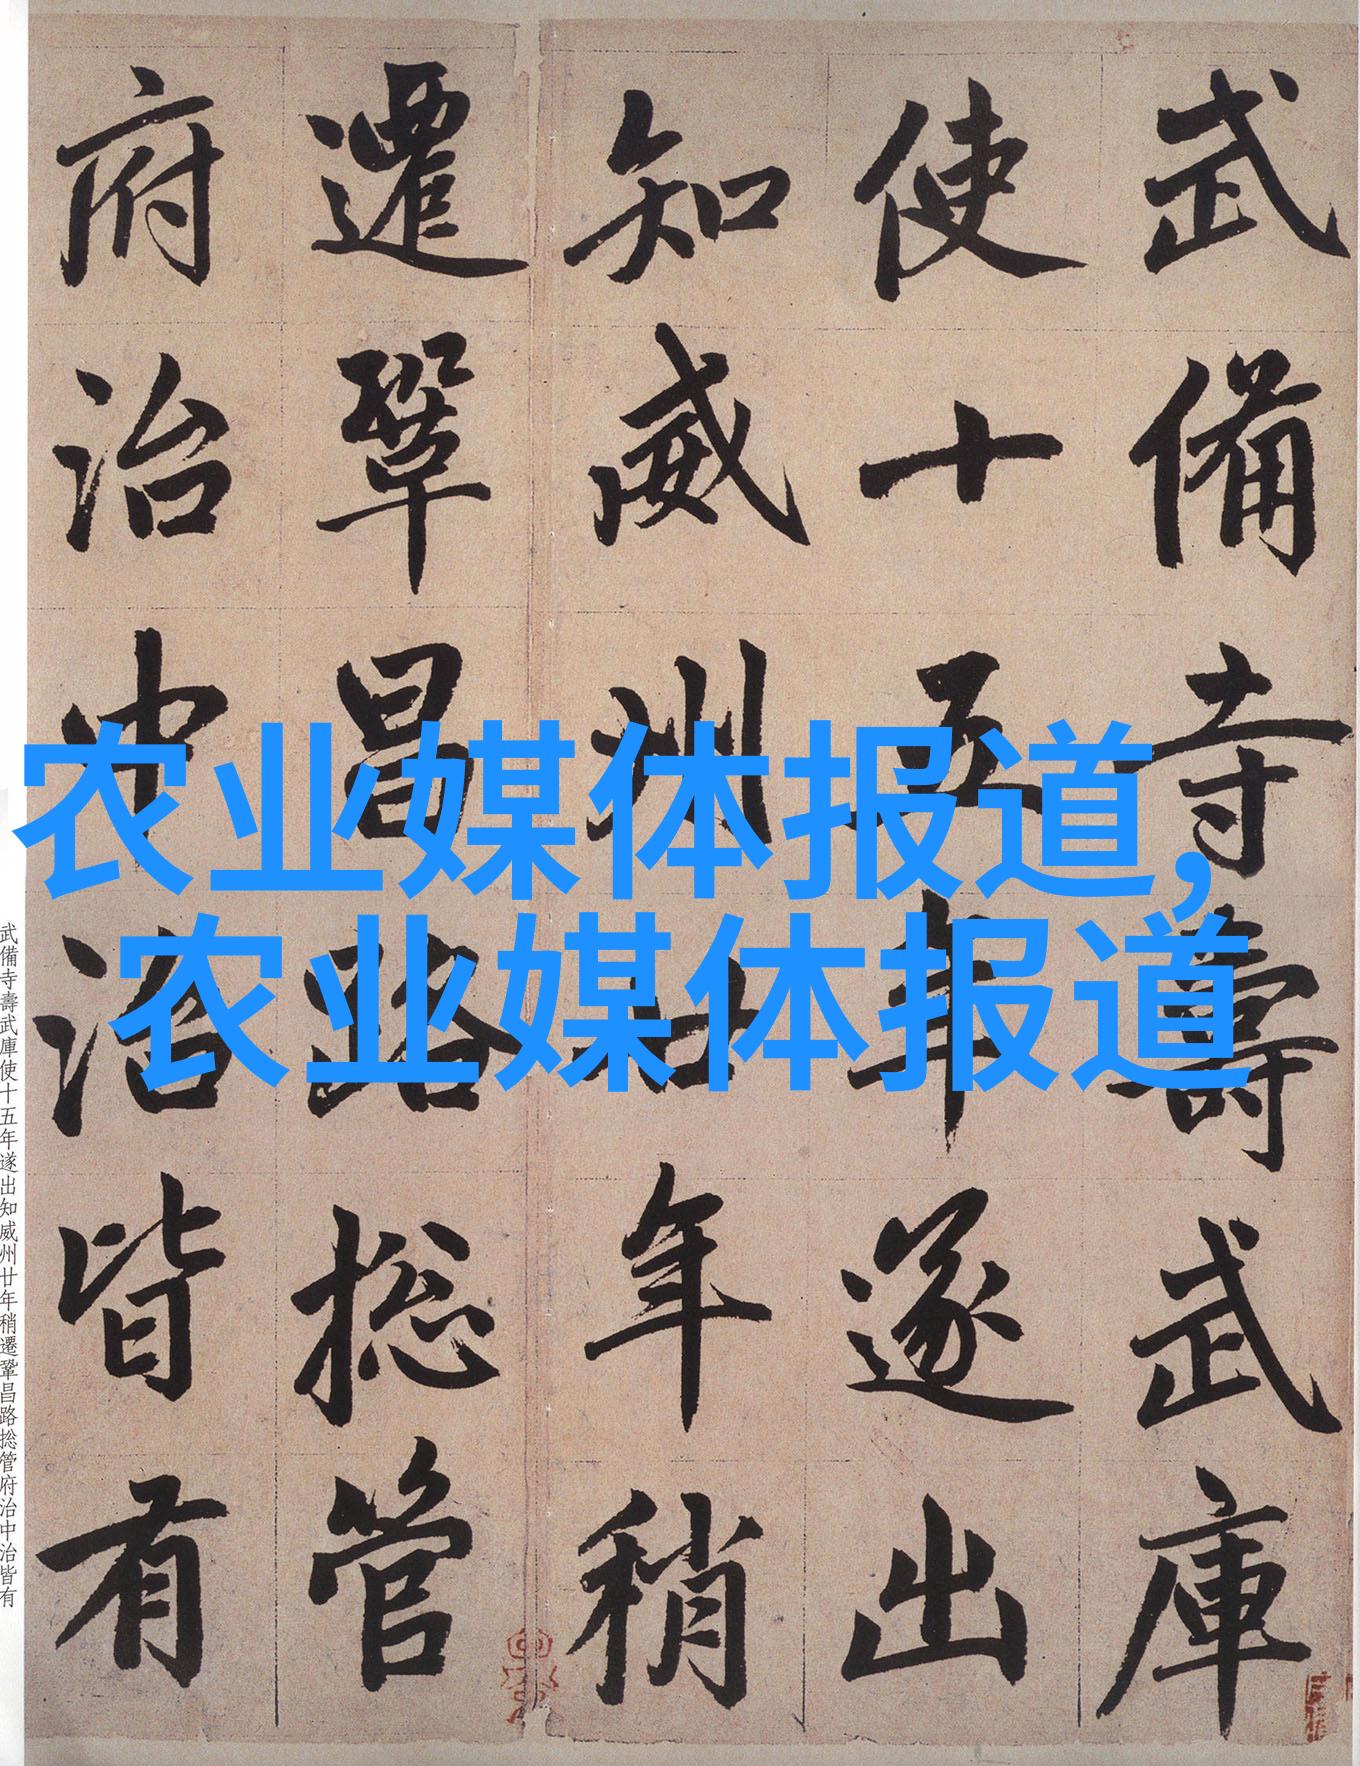 武備寺壽武庫
使十五年遂出
知威州廿年稍
遷鞏昌路捴管
府治中治皆有
农业媒体报道,
农业媒体报道
武備寺壽武庫使十五年遂出知威州廿年稍遷鞏昌路捴管府治中治皆有